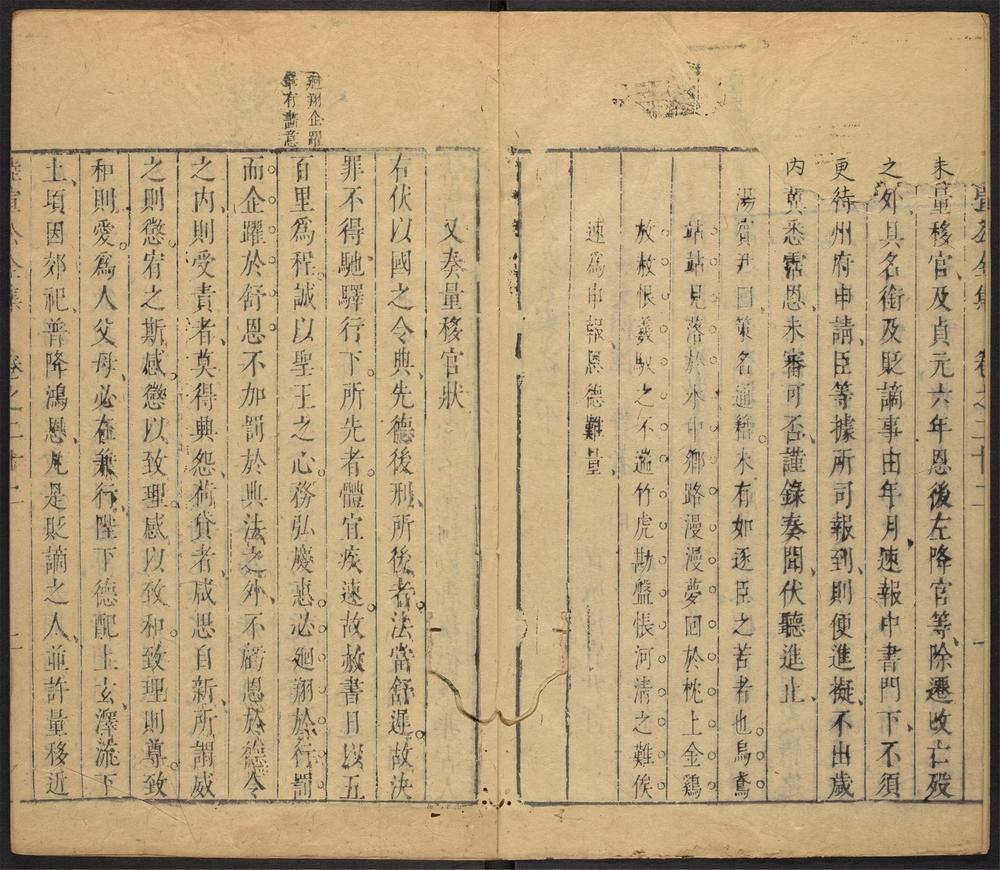 宣公全集　卷之二十二　一
未量移官及貞元六年恩後左降官等除遷改亡歿
之外具名銜及貶謫事由年月速報中書門下不須
更待州府申請臣等據所司報到則便進擬不出歲
內冀悉霑恩未審可否謹錄奏聞伏聽進止
湯賓尹曰策名通籍未有如逐臣之苦者也烏鳶
站站見落於水中鄉路漫漫夢回於枕上金鷄
放赦恨羲馭之不遄竹虎勘盤悵河清之難俟
速為申報恩德難量
又奏量移官狀
右伏以國之令典先德後刑所後者法當舒遲故決
罪不得馳驛行下所先者體宜疾速故赦書日以五
百里爲程誠以聖王之心務弘慶惠必廻翔於行罰
而企躍於舒恩不加罰於典法之外不虧恩於德令
之內則受責者莫得興怨荷貸者咸思自新所謂威
之則懲宥之斯感懲以致理感以致和致理則尊致
和則愛爲人父母必在兼行陛下德配上玄澤流下
土頃因郊祀普降鴻恩凡是貶謫之人並許量移近
廻翔企躍
有意
陸宣公全集　卷之二十二　一